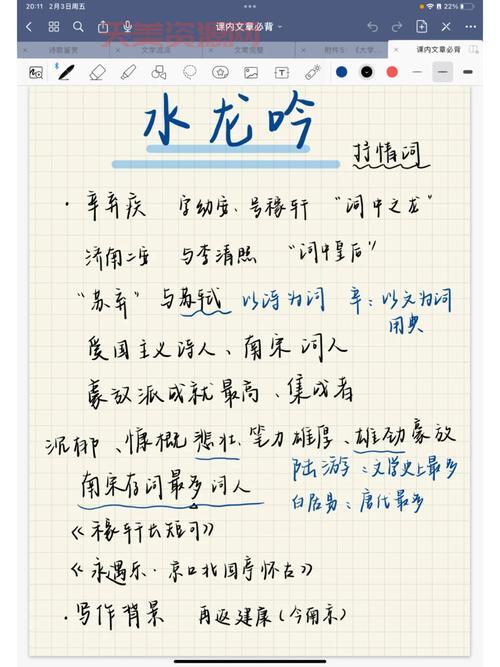 20:11 2月3日周五
22%
天美资源网
课内文章必背
诗歌鉴赏
文学流派
文常完整
附件5:《大学...
课内文章必背
水龙吟
抒情词
· 辛弃疾 字幼安、号稼轩 “词中之龙”
济南二安 与李清照 “词中皇后”
“苏辛” 与苏轼 以诗为词 辛:以文为词
用典
爱国主义诗人、南宋词人
豪放派成就最高、集成者
沉郁、慷慨悲壮、笔力雄厚、雄劲豪放
南宋存词最多词人
陆游:文学史上最多
白居易:唐代最多
《稼轩长短句》
《永遇乐·京口北固亭怀古》
· 写作背景 再返建康(今南京)